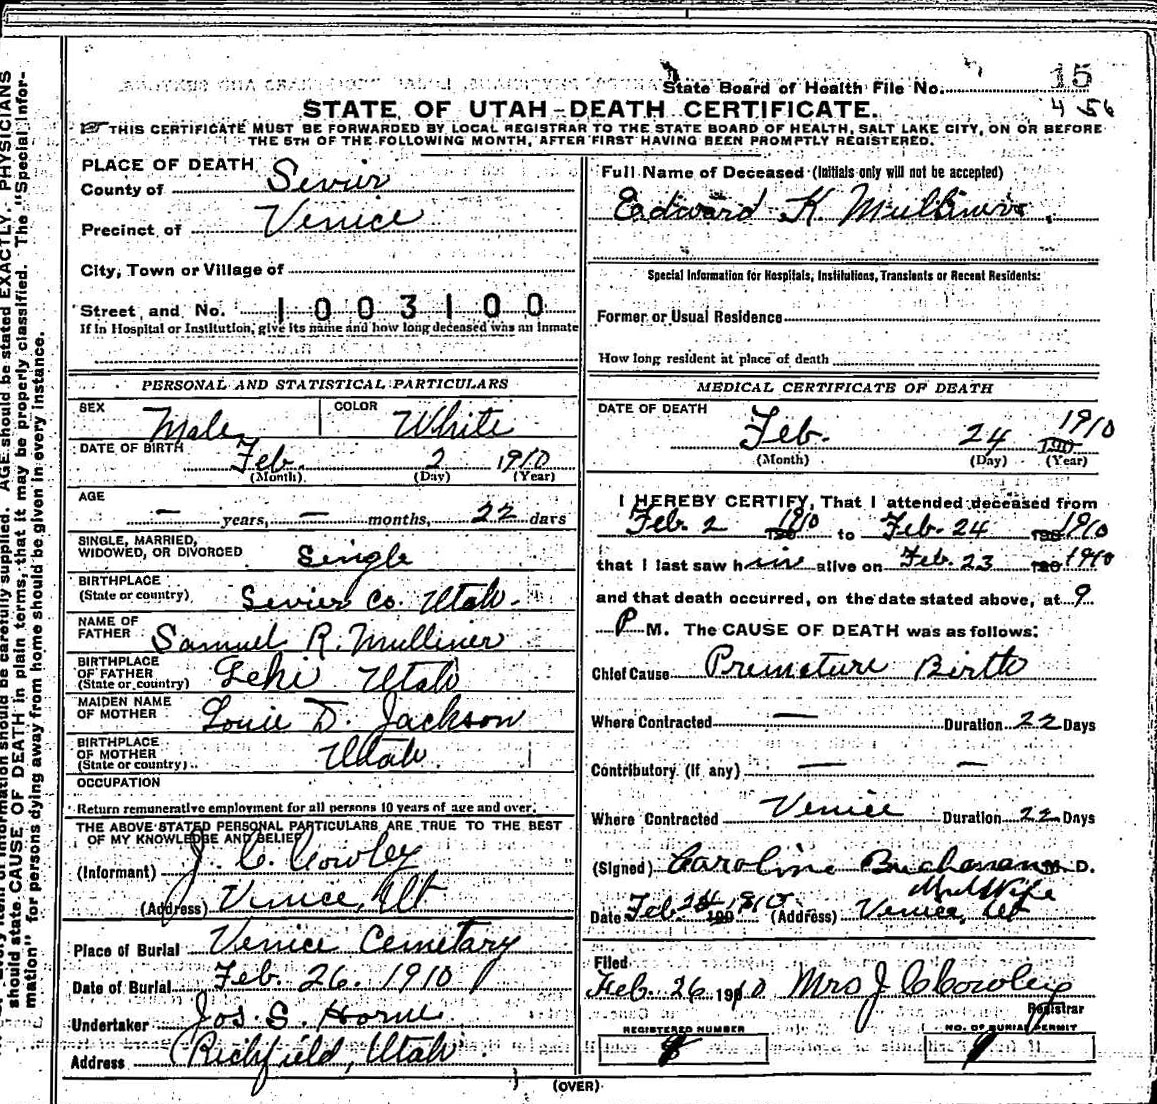 State Board of Health File No. 15
456
STATE OF UTAH-DEATH CERTIFICATE.
THIS CERTIFICATE MUST BE FORWARDED BY LOCAL REGISTRAR TO THE STATE BOARD OF HEALTH, SALT LAKE CITY, ON OR BEFORE
THE 5TH OF THE FOLLOWING MONTH, AFTER FIRST HAVING BEEN PROMPTLY REGISTERED.
PLACE OF DEATH
County of Sevier
Precinct of Venice
City, Town or Village of
Street and No. 1003100
If in Hospital or Institution, give its name and how long deceased was an inmate
PERSONAL AND STATISTICAL PARTICULARS
SEX Male COLOR White
DATE OF BIRTH Feb. 2 1910
(Month) (Day) (Year)
AGE
— years, — months, 22 days
SINGLE, MARRIED,
WIDOWED, OR DIVORCED Single
BIRTHPLACE
(State or country) Sevier Co. Utah.
NAME OF
FATHER Samuel R. Mulliner
BIRTHPLACE
OF FATHER
(State or country) Lehi Utah
MAIDEN NAME
OF MOTHER Louie D. Jackson
BIRTHPLACE
OF MOTHER
(State or country) Utah
OCCUPATION
Return remunerative employment for all persons 10 years of age and over.
THE ABOVE STATED PERSONAL PARTICULARS ARE TRUE TO THE BEST
OF MY KNOWLEDGE AND BELIEF
(Informant) J. C. Cowley
(Address) Venice, Ut
Place of Burial Venice Cemetary
Date of Burial Feb. 26. 1910
Undertaker Jos. S. Horne
Address Richfield, Utah
Full Name of Deceased (Initials only will not be accepted)
Edward K Mulliner.
Special Information for Hospitals, Institutions, Transients or Recent Residents:
Former or Usual Residence
How long resident at place of death
MEDICAL CERTIFICATE OF DEATH
DATE OF DEATH
Feb. 24 190 1910
(Month) (Day) (Year)
I HEREBY CERTIFY, That I attended deceased from
Feb. 2 190 1910 to Feb. 24 190 1910
that I last saw him alive on Feb. 23 190 1910
and that death occurred, on the date stated above, at 9
P M. The CAUSE OF DEATH was as follows:
Chief Cause Premature Birth
Where Contracted — Duration 22 Days
Contributory (if any) — —
Where Contracted Venice Duration 22 Days
(Signed) Caroline Buchanan M. D.
MidWife
Date Feb. 24 1910 (Address) Venice, Ut
Filed
Feb. 26 1910 Mrs J C Cowley
Registrar
REGISTERED NUMBER NO. OF BURIAL PERMIT
(OVER)
AGE should be stated EXACTLY. PHYSICIANS
should state CAUSE OF DEATH in plain terms, that it may be properly classified. The "Special Infor-
mation" for persons dying away from home should be given in every instance.